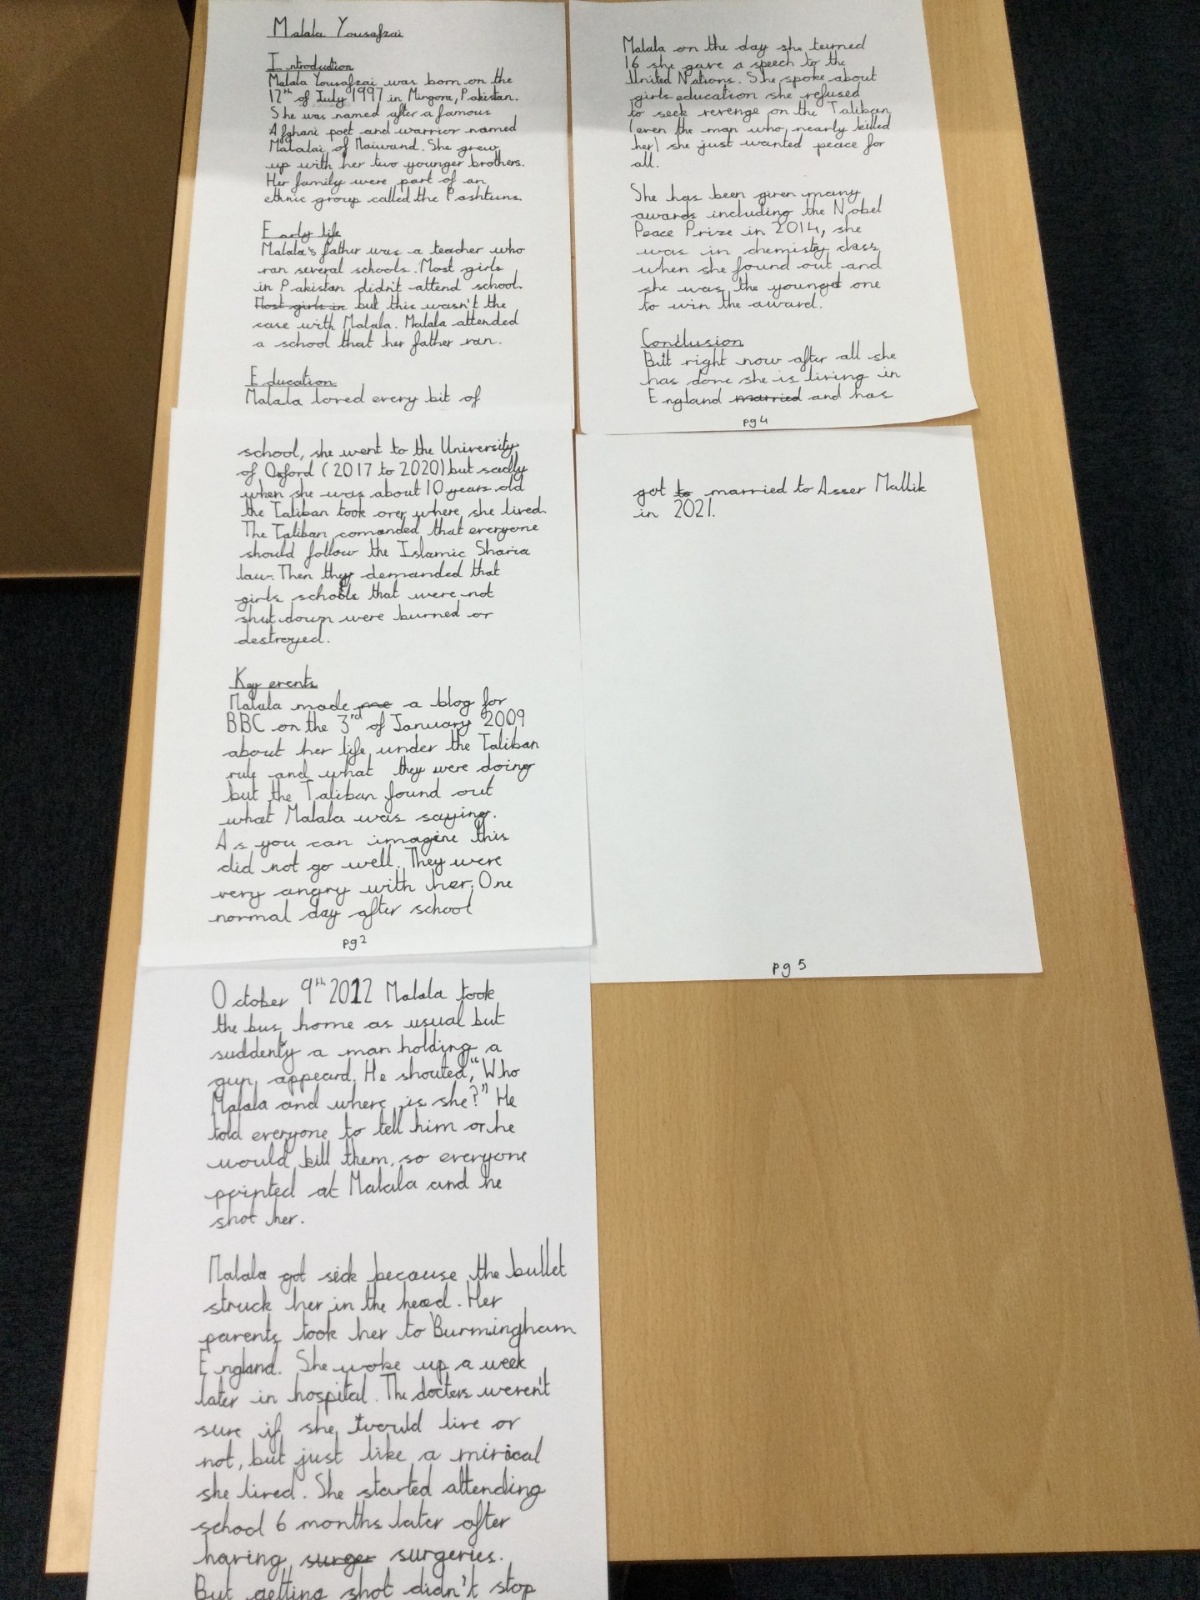 Malala Yousafzai
Introduction
Malala Yousafzai was born on the
12th of July 1997 in Mingora, Pakistan.
She was named after a famous
Afghani poet and warrior named
Malalai of Maiwand. She grew
up with her two younger brothers.
Her family were part of an
ethnic group called the Pashtuns.
Early life
Malala's father was a teacher who
ran several schools. Most girls
in Pakistan didn't attend school.
Most girls in but this wasn't the
case with Malala. Malala attended
a school that her father ran.
Education
Malala loved every bit of
school, she went to the University
of Oxford (2017 to 2020) but sadly
when she was about 10 years old
the Taliban took over where she lived.
The Taliban comanded that everyone
should follow the Islamic Sharia
law. Then they demanded that
girls schools that were not
shut down were burned or
destroyed.
Key events
Malala made me a blog for
BBC on the 3rd of January 2009
about her life under the Taliban
rule and what they were doing
but the Taliban found out
what Malala was saying.
As you can imagine this
did not go well. They were
very angry with her. One
normal day after school
pg 2
October 9th 2012 Malala took
the bus home as usual but
suddenly a man holding a
gun appeard. He shouted, "Who
Malala and where is she?" He
told everyone to tell him or he
would kill them, so everyone
pointed at Malala and he
shot her.
Malala got sick because the bullet
struck her in the head. Her
parents took her to Burmingham
England. She woke up a week
later in hospital. The docters weren't
sure if she would live or
not, but just like a mirical
she lived. She started attending
school 6 months later after
having surger surgeries.
But getting shot didn't stop
Malala on the day she turned
16 she gave a speech to the
United Nations. She spoke about
girls education she refused
to seek revenge on the Taliban
(even the man who nearly killed
her) she just wanted peace for
all.
She has been given many
awards including the Nobel
Peace Prize in 2014, she
was in chemistry class
when she found out and
she was the youngest one
to win the award.
Conclusion
But right now after all she
has done she is living in
England married and has
pg 4
got to married to Asser Mallik
in 2021.
pg 5